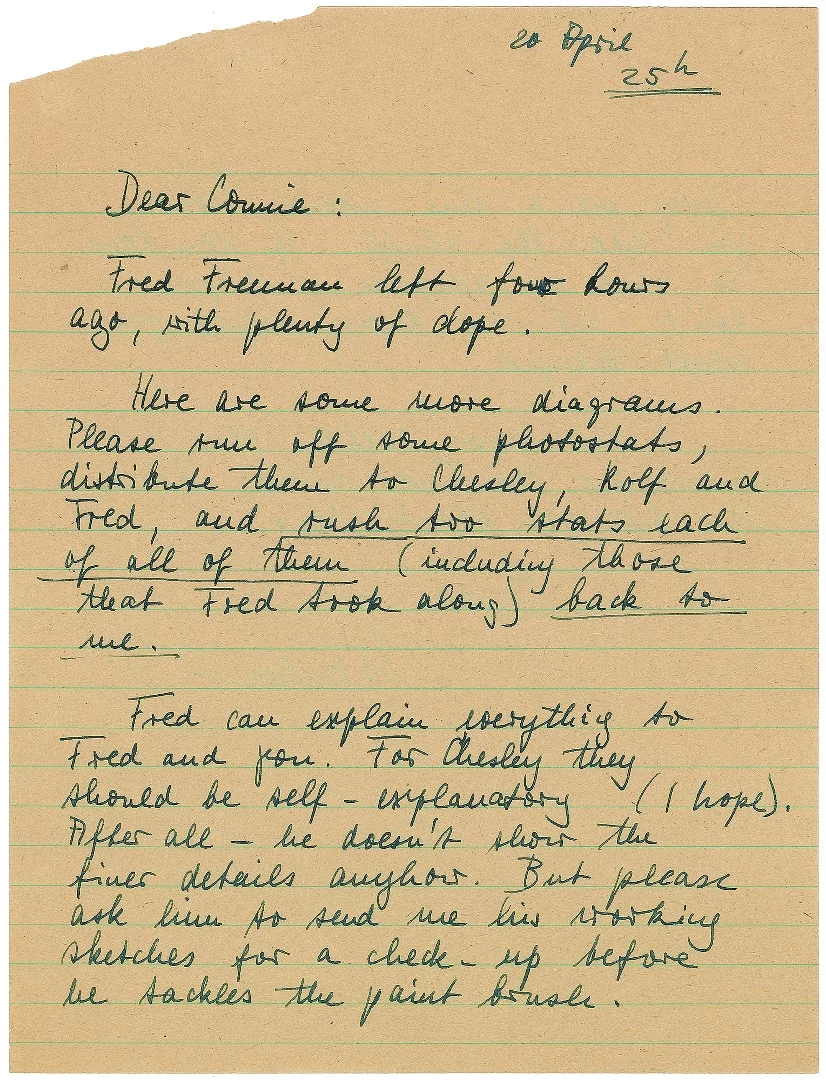 20 April
25h
Dear Connie :
Fred Freeman left four hours
ago, with plenty of dope.
Here are some more diagrams.
Please run off some photostats,
distribute them to Chesley, Rolf and
Fred, and rush two stats each
of all of them (including those
that Fred took along) back to
me.
Fred can explain everything to
Fred and you. For Chesley they
should be self - explanatory (I hope).
After all - he doesn't show the
finer details anyhow. But please
ask him to send me his working
sketches for a check-up before
he tackles the paint brush.